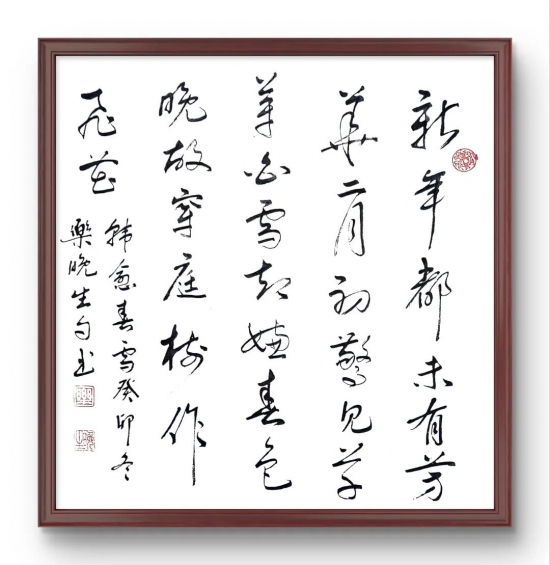 新年都未有芳
華二月初驚見草
芽白雪却嫌春色
晚故穿庭樹作
飛花
韓愈春雪癸卯冬
樂晚生书